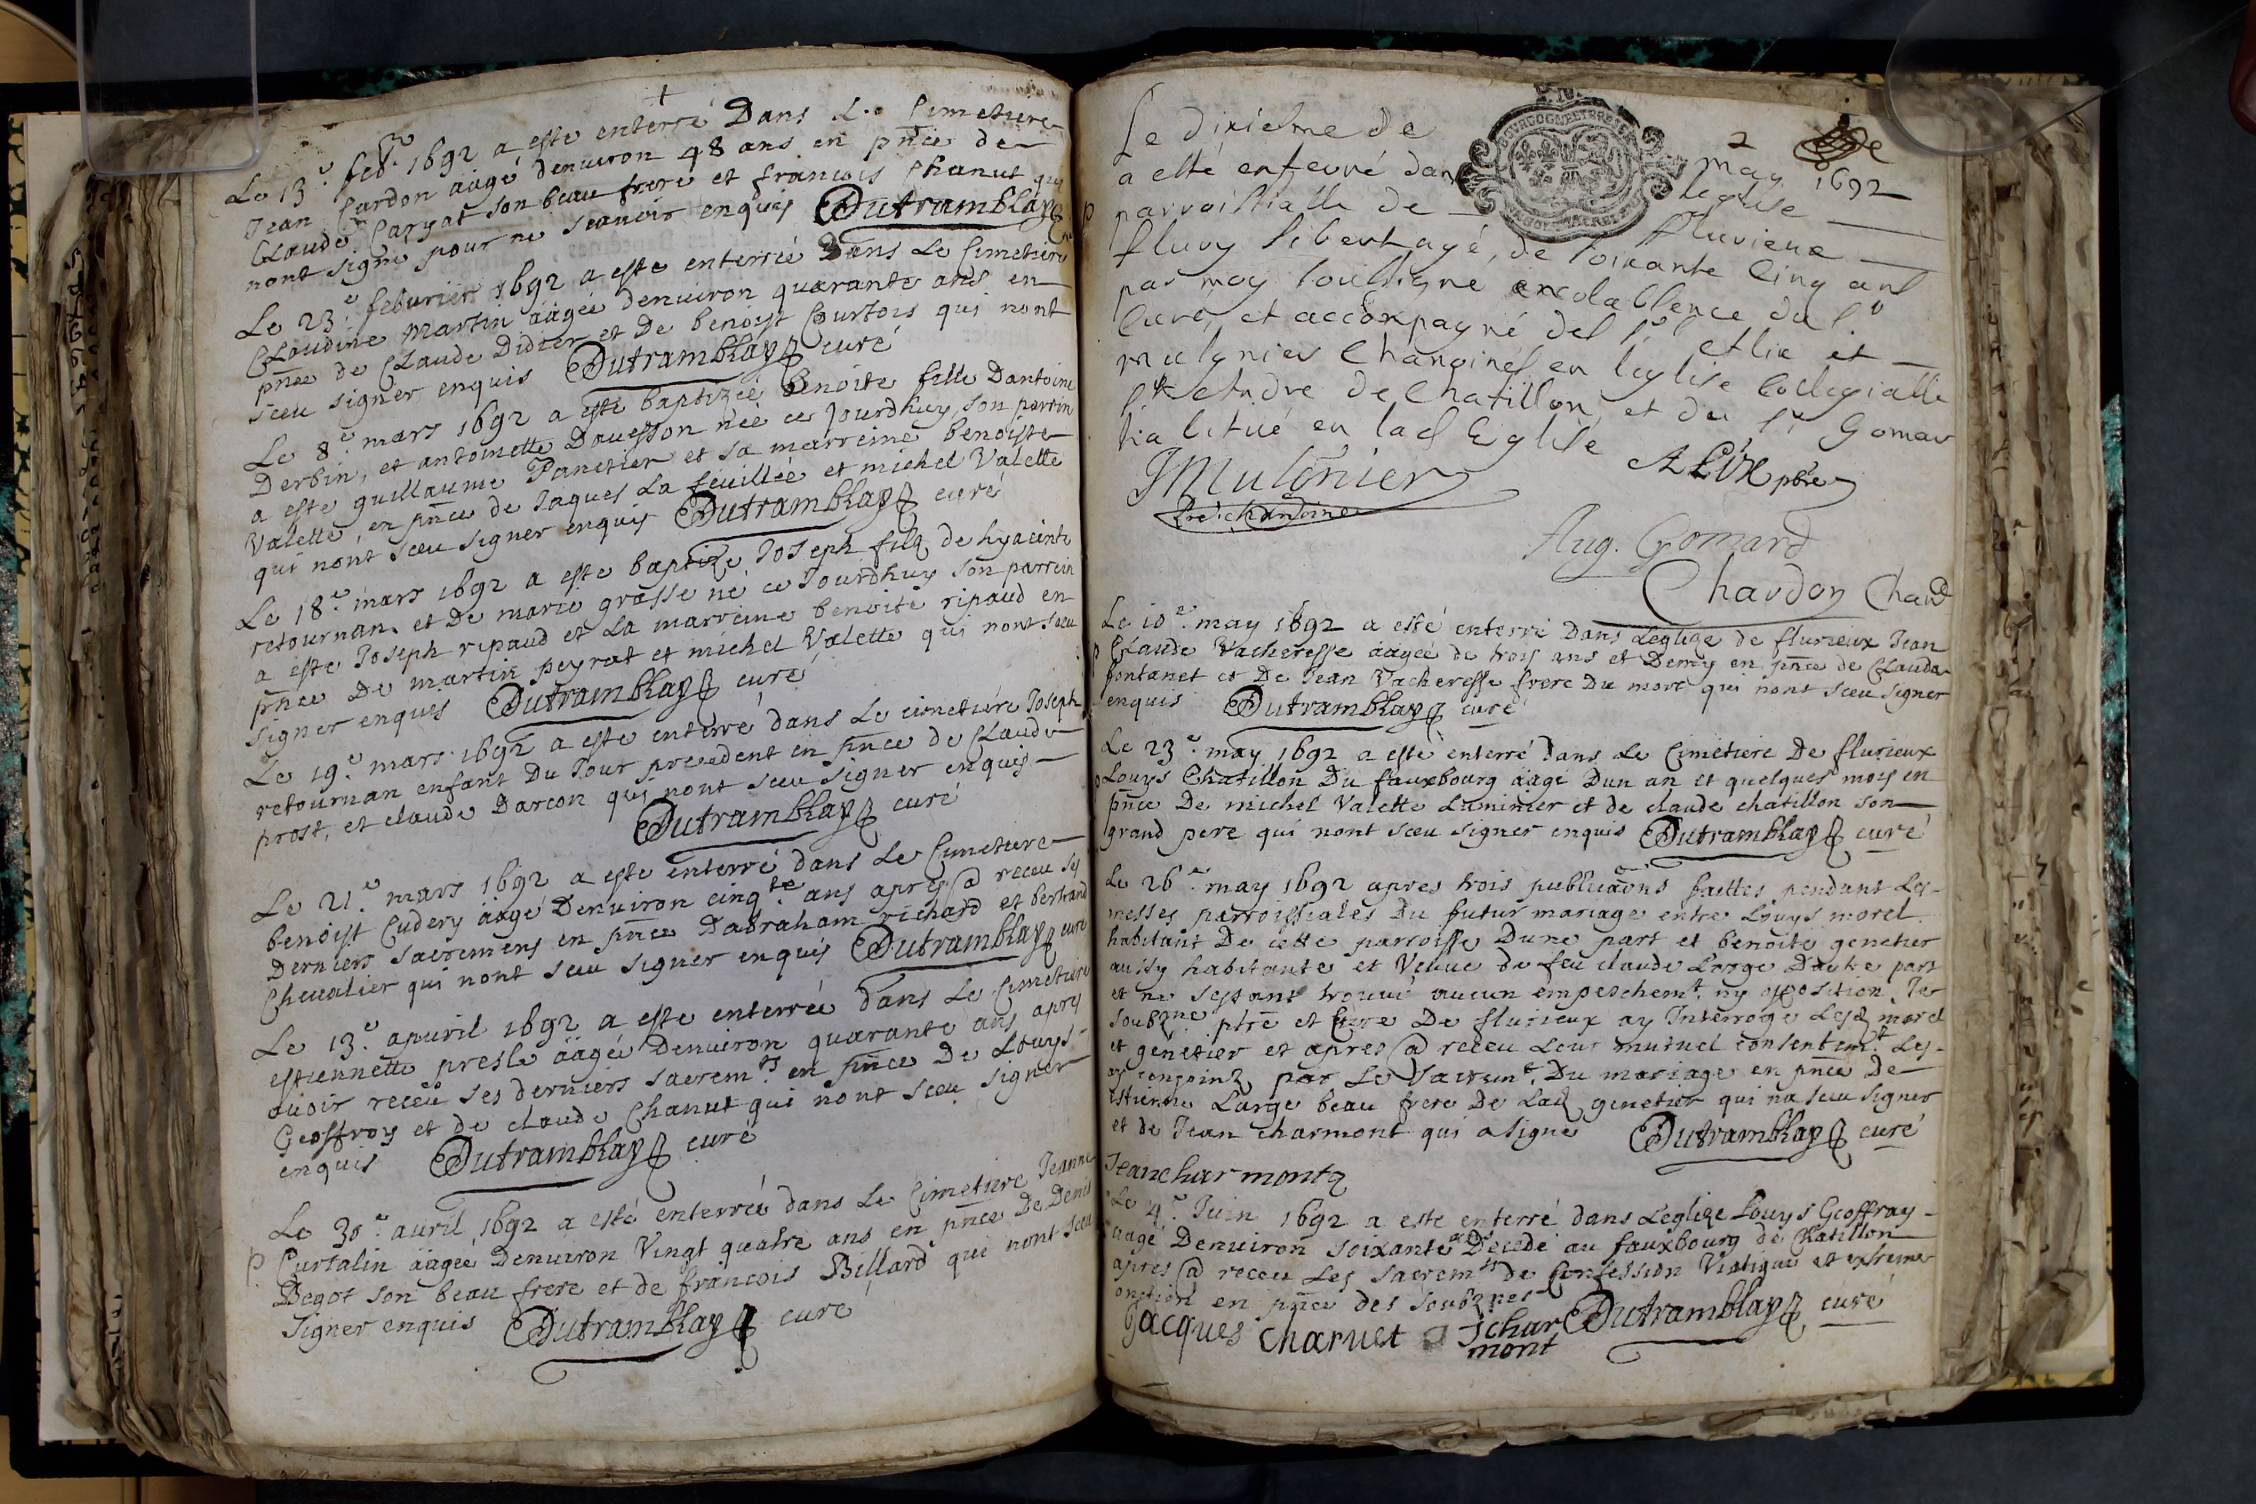 Le 13.e feb.er 1692 a este enterré Dans Le Cimetiere
Jean Cardon äagé denuiron 48 ans en pñce de
Claude Caryat son beau frere et francois Chanut qui
nont signé pour ne scauoir enquis Dutramblay
Le 23.e feburier 1692 a este enterreé Dans Le Cimetiere
Claudine Martin äageé denuiron quarante ans en
pñce de Claude Didier et De benoist Courtois qui nont
sceu signer enquis Dutramblay curé
Le 8.e mars 1692 a este baptizeé benoite fille Dantoine
Derbin, et antoinette Dauesson neé ce jourdhuy, son parrin
a este guillaume Panetier et sa marreine benoiste
Valette, en pñce de Jaques La feuilleé et michel Valette
qui nont sceu signer enquis Dutramblay curé
Le 18.e mars 1692 a este baptizé Joseph filz de hyacinte
retournan, et De marie grasse né ce Jourdhuy son parrein
a este Joseph ripaud et La marreine benoite ripaud en
pñce De martin peyrat et michel Valette qui nont sceu
signer enquis Dutramblay curé
Le 19.e mars 1692 a este enterré dans Le cimetiére Joseph
retournan enfant Du Jour precedent en pñce de Claude
prost, et claude Darcon qui nont sceu signer enquis
Dutramblay curé
Le 21.e mars 1692 a este enterré dans Le Cimetiere
benoist Cudery äagé Denuiron cinq.te ans apres @ receu ses
Derniers sacremens en pñce Dabraham richard et bertrand
Cheualier qui nont sceu signer enquis Dutramblay curé
Le 13.e apuril 1692 a este enterreé dans Le Cimetiere
estiennette presle äageé Denuiron quarante ans apres
auoir receu ses derniers sacrem.ts en pñce De Louys
Geoffroy et de claude Chanut qui nont sceu signer
enquis Dutramblay curé
Le 30.e auril 1692 a esté enterreé dans Le Cimetiere Jeanne
P. Curtalin äageé Denuiron Vingt quatre ans en pñce De Denis
Degot son beau frere et de francois Billard qui nont sceu
Signer enquis Dutramblay curé
2
Le dixiesme de may 1692
a esté enseuré dans leglise
parroissialle de flurieux
flury libert ayé, de soixante Cinq ans
par moy soussigné en labsence du S.r
Curé, et accompagné des S.rs Alix et
mulonier Chanoines en leglise Collegialle
S.t Andre de Chatillon, et du S.r Gomar
habitué en lad Eglise
JMulonier ALIX pbre
pre. chanoine
Aug. Gomard
Chardon Chan
Le 10.e may 1692 a esté enterré Dans Leglize de flurieux Jean
P Claude Vacheresse äageé de trois ans et Demy en pñce de Clauda
fontanet et De Jean Vacheresse frere Du mort qui nont sceu signer
enquis Dutramblay curé
Le 23.e may 1692 a esté enterré Dans Le Cimetiere De flurieux
Louys Chatillon Du fauxbourg äagé Dun an et quelques mois en
pñce De michel Valette Luminier et de claude chatillon son
grand pere qui nont sceu signer enquis Dutramblay curé
Le 26.e may 1692 apres trois publicaons faittes pendant Les
messes parroissiales Du futur mariage entre Louys morel
habitant De cette parroisse Dune part et benoite genetier
aussy habitante et Veuue de feu claude Large Dautre part
et ne sestant trouué aucun empeschem.t ny opposition, Je
soubz.ne ptre et Curé De flurieux ay Interrogé Lesd morel
et genetier et apres @ receu Leur mutuel consentem.t Les
ay conjoinz par Le sacrem.t Du mariage en pñce De
estienne Large beau frere De Lad genetier qui na sceu signer
et de Jean charmont qui a signé Dutramblay curé
Jeancharmont
Le 4.e Juin 1692 a este enterré dans Leglize Louys Geoffray
aage Denuiron soixante Decedé au fauxbourg de Chatillon
apres @ receu Les sacrem.ts de Confession Viatique et extreme
onction en pñce des soubznes
Jacques Charuet Jchar Dutramblay curé
mont